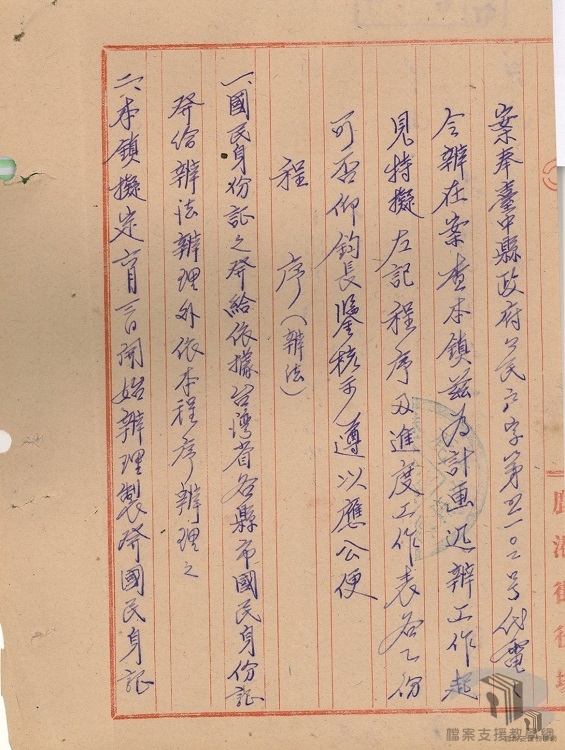 案奉臺中縣政府公民戶字第五一〇二号代電
令辦在案查本鎮茲為計画迅辦工作起
見特擬左記程序及進度工作表各乙份
可否仰鈞長鑒核示遵以應公便
程序(辦法)
一、國民身份証之發給依據台灣省各縣市國民身份証
發給辦法辦理外依本程序辦理之
二、本鎮擬定 開始辦理製發國民身証
檔案支援教學網